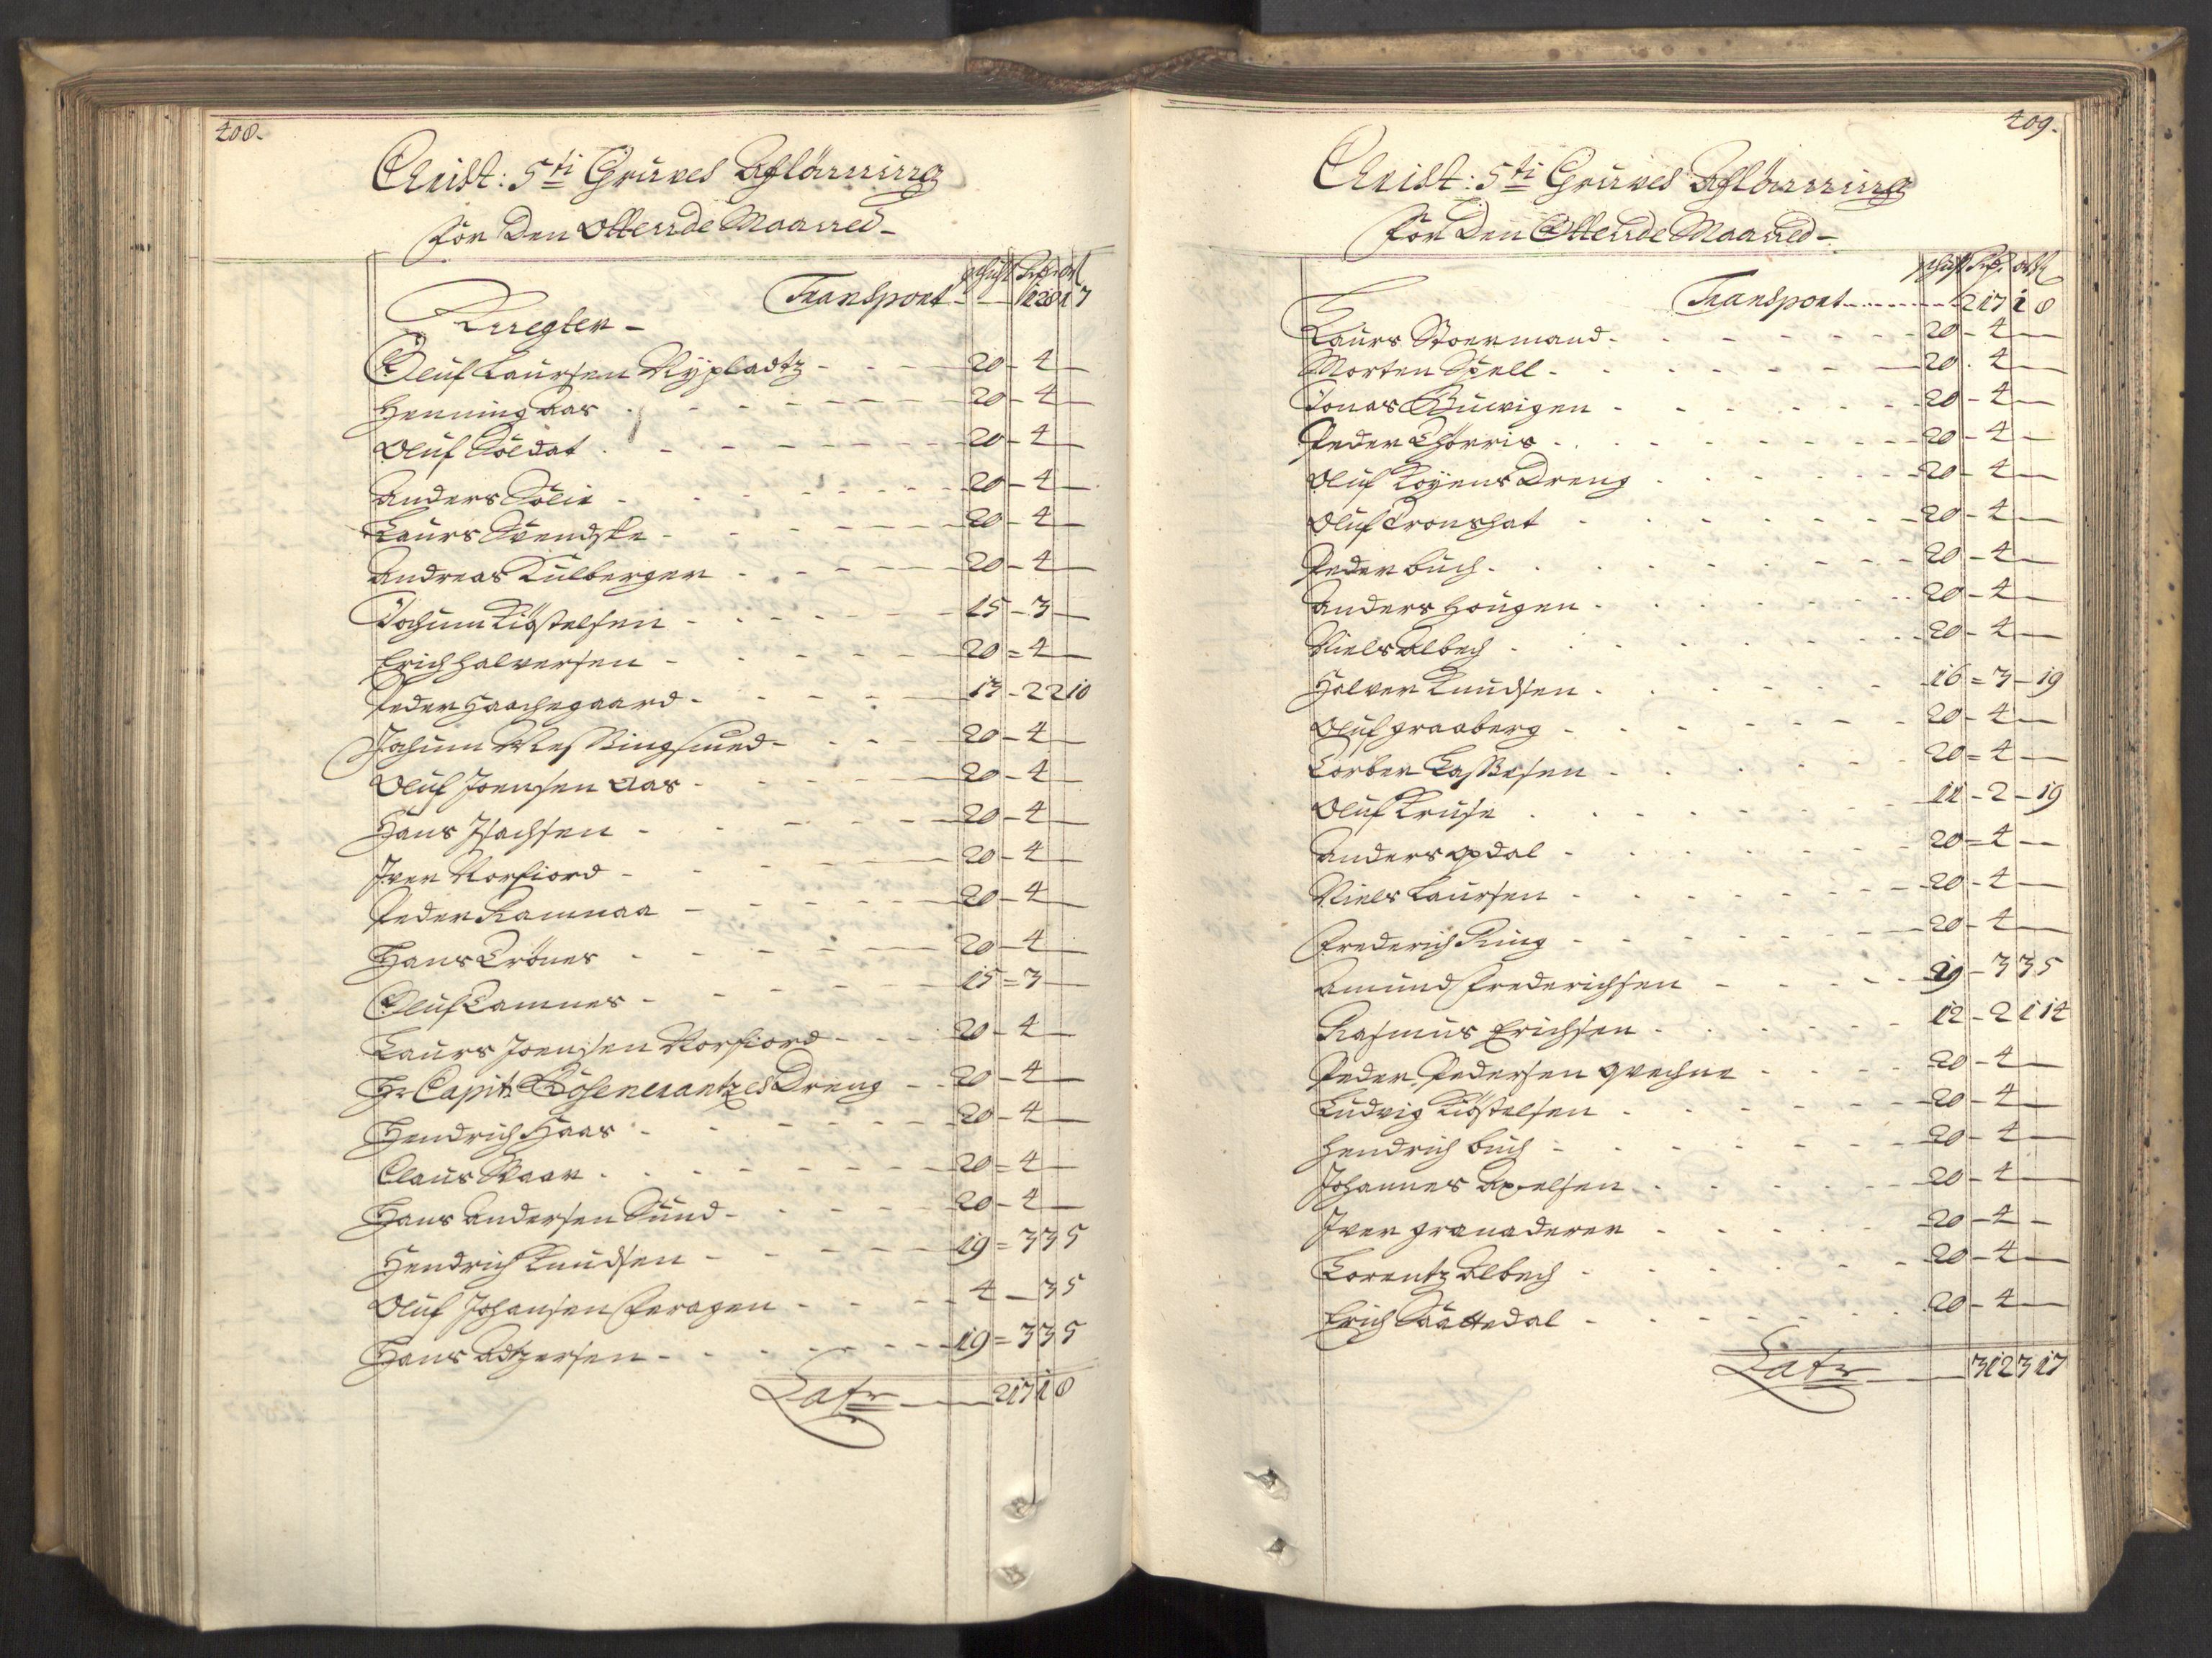 408.
Christ: 5ti Gruves Afflönning
for Den Ottende Maaned
Schift Rdr ort ß
Transport - 128 1 7
Knegter -
Oluf Laursen Nÿpladtz - 20 - 4 -
Henning Aas - 20 - 4 -
Oluf Soldat - 20 - 4 -
Anders Solie - 20 - 4 -
Laurs Svendske - 20 - 4 -
Andreas Kulberger - 20 - 4 -
Jochum Kiöstelsen - 15 - 3 -
Erich Halversen - 20 = 4 -
Peder Haachegaard - 13 - 2 2 10
Jochum Messingsmed - 20 - 4 -
Oluf Joensen Aas - 20 - 4 -
Hans Isachsen - 20 - 4 -
Iver Norfiord - 20 - 4 -
Peder Kamnaa - 20 - 4 -
Hans Trönes - 20 - 4 -
Oluf Tamnes - 15 = 3 -
Laurs Joensen Norfiord - 20 - 4 -
Hr Capit: Dreng - 20 - 4 -
Hendrich Haas - 20 - 4 -
Claus Skaar - 20 = 4 -
Hans Andersen Sund - 20 - 4 -
Hendrich Knudsen - 19 = 3 3 5
Oluf Johansen Feragen - 4 - 3 5
Hans Adzersen - 19 = 3 3 5
Latr - 217 1 8
409.
Christ: 5ti Gruves Afflönning
for Den Ottende Maaned -
Schift Rdr ort ß
Transport - 217 1 8
Laurs Stoermand - 20 - 4 -
Morten Snell - 20 - 4 -
Jonas Buvigen - 20 - 4 -
Peder Thörris - 20 - 4 -
Oluf Koÿens Dreng - 20 - 4 -
Oluf Tronshat - 20 - 4 -
Peder Buch - 20 - 4 -
Anders Hougen - 20 - 4 -
Niels Albech - 20 - 4 -
Halver Knudsen - 16 = 3 - 19
Oluf Graaberg - 20 - 4 -
Torber Lassesen - 20 = 4 -
Oluf Kruse - 11 - 2 - 19
Anders Opdal - 20 = 4 -
Niels Laursen - 20 - 4 -
Frederich Ring - 20 - 4 -
Amund Frederichsen - 19 - 3 3 5
Rasmus Erichsen - 12 - 2 1 14
Peder Pedersen Qvechne - 20 - 4 -
Ludvig Kiöstelsen - 20 - 4 -
Hendrich Buch - 20 - 4 -
Johannes Axelsen - 20 - 4 -
Iver Granaderer - 20 - 4 -
Lorentz Albech - 20 - 4 -
Erich Saattedal - 20 - 4 -
Latr - 312 3 17